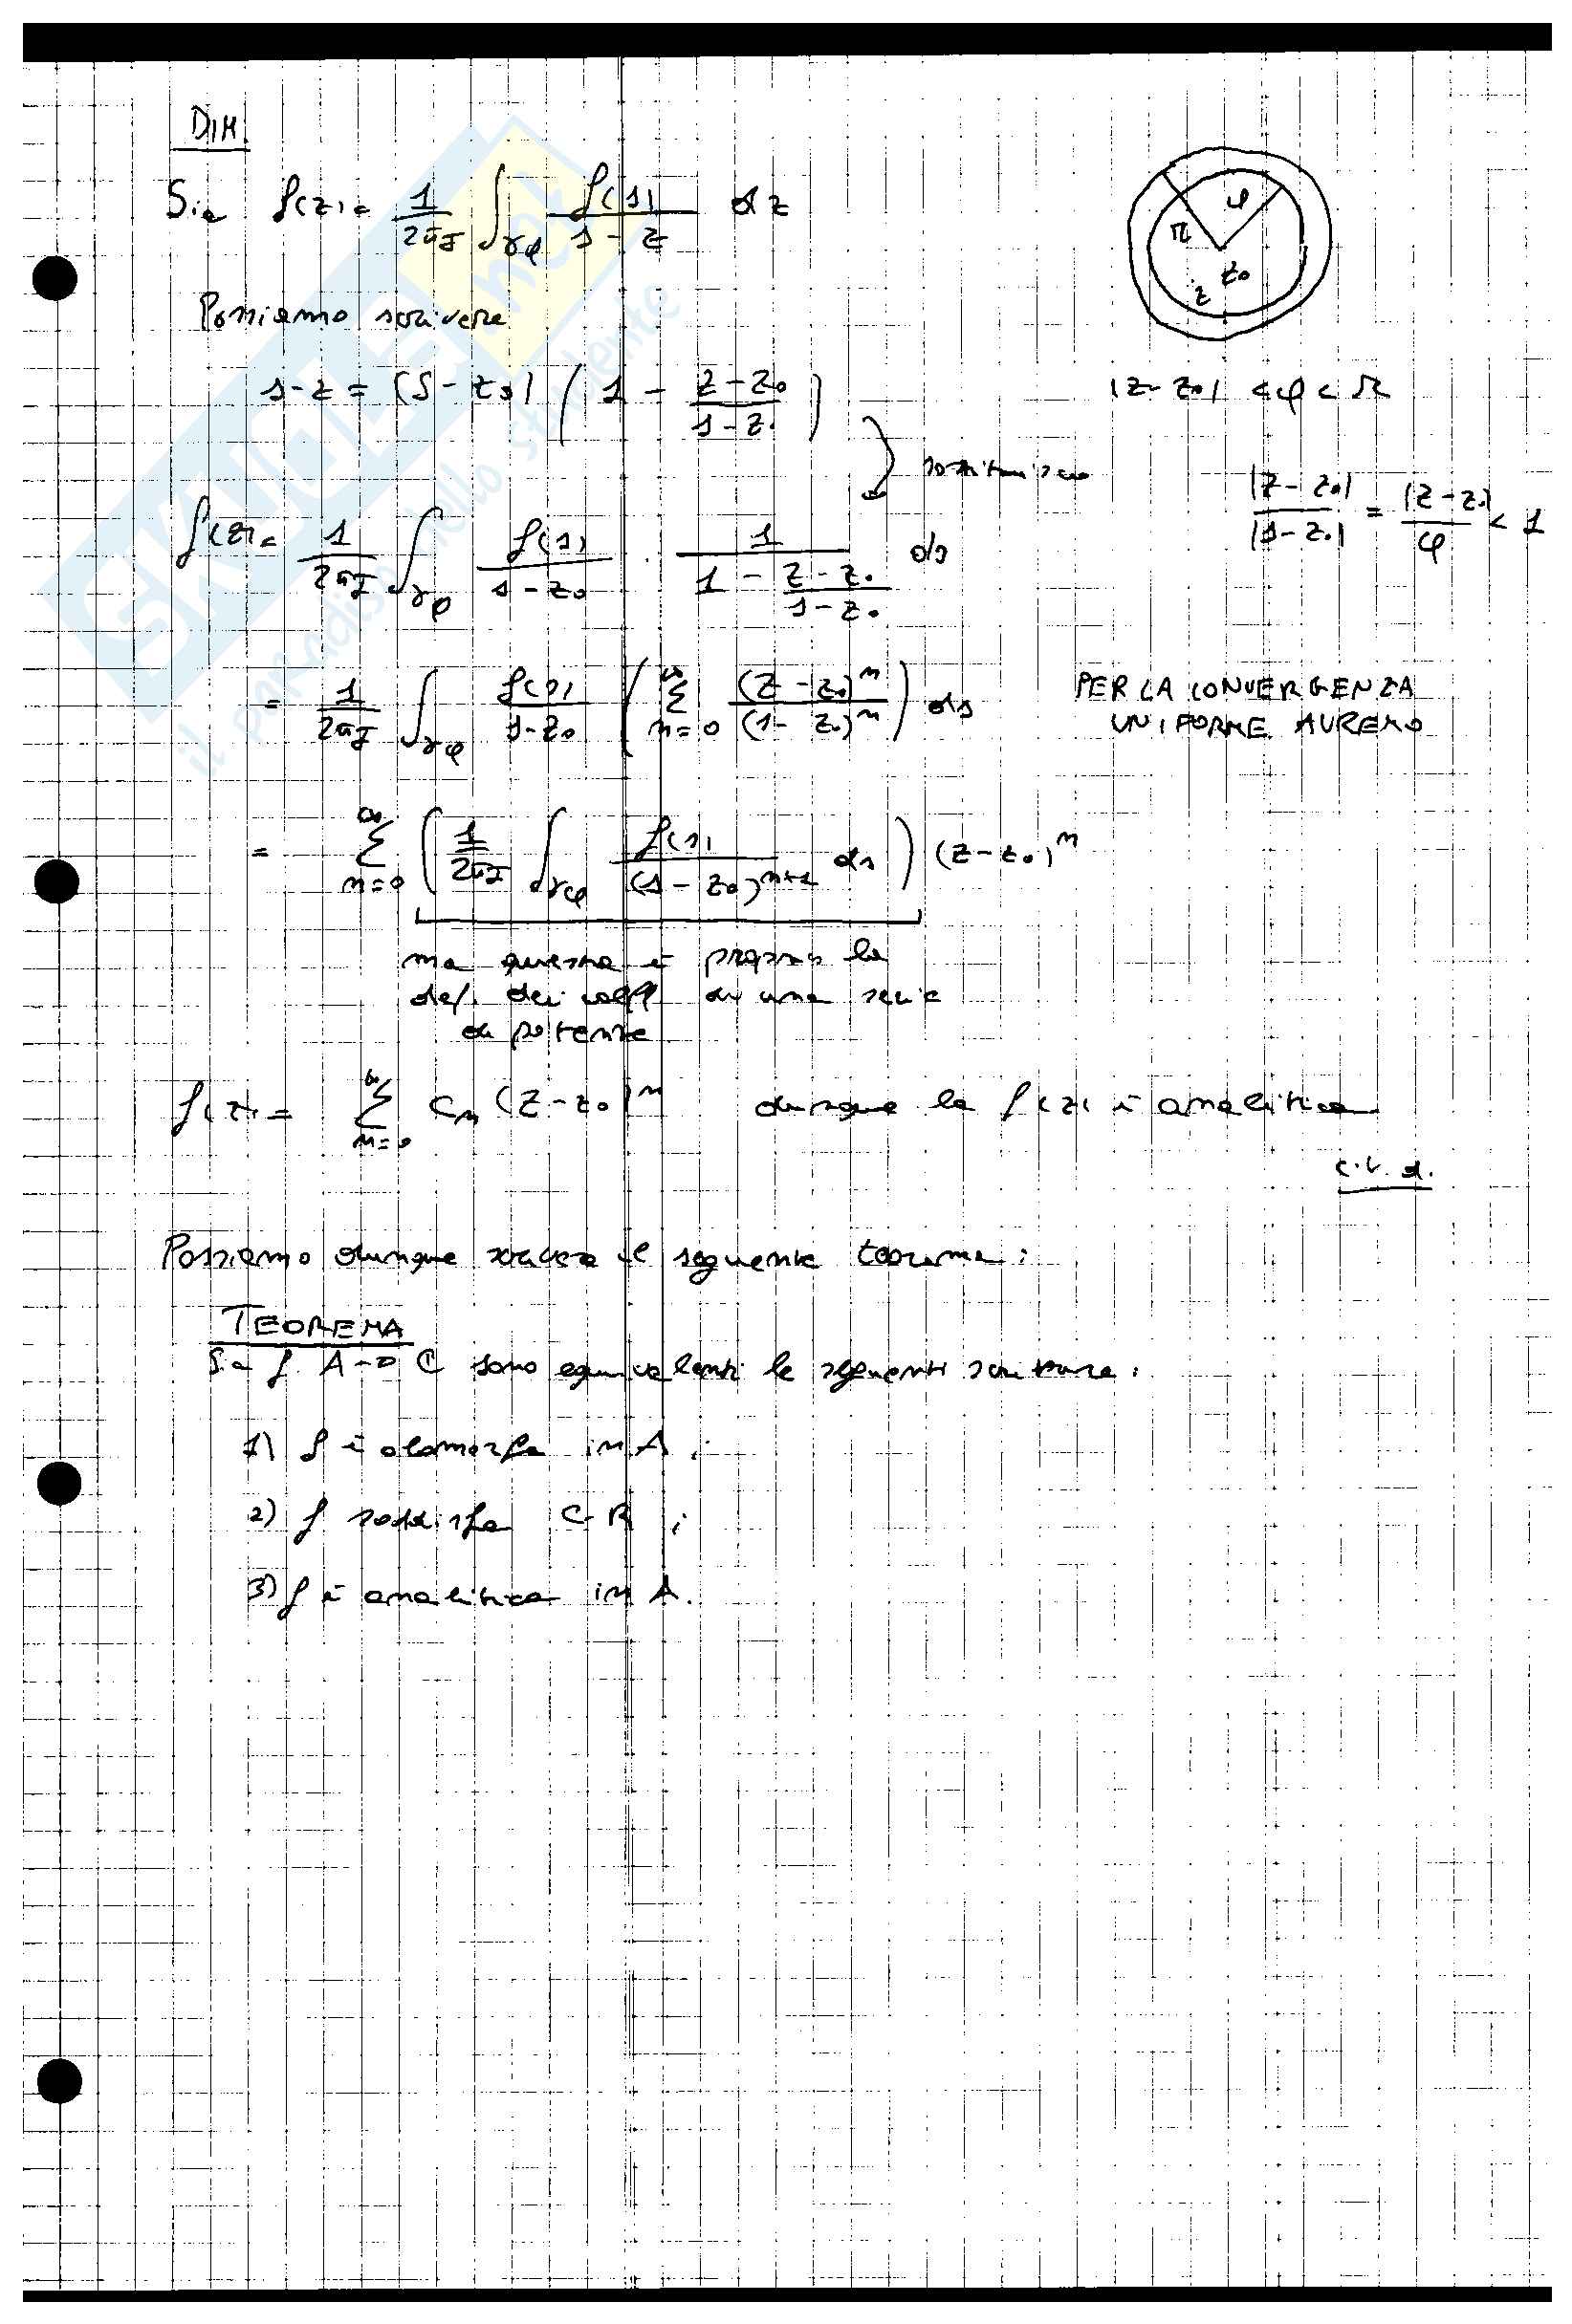 DIM.
Sia f(z) = 1/(2πj) ∫_γφ f(s)/(s - z) dz
φ
r
z0
z
Possiamo scrivere
s - z = (s - z0) (1 - (z - z0)/(s - z0))
|z - z0| < φ < r
sostituisco
|z - z0|/|s - z0| = |z - z0|/φ < 1
f(z) = 1/(2πj) ∫_γφ f(s)/(s - z0) · 1/(1 - (z - z0)/(s - z0)) ds
= 1/(2πj) ∫_γφ f(s)/(s - z0) (∑_{n=0}^∞ (z - z0)^n/(s - z0)^n) ds
PER LA CONVERGENZA
UNIFORME AVREMO
= ∑_{n=0}^∞ (1/(2πj) ∫_γφ f(s)/(s - z0)^{n+1} ds) (z - z0)^n
ma questa è proprio la
def. dei coeff di una serie
di potenze
f(z) = ∑_{n=0}^∞ c_n (z - z0)^n dunque la f(z) è analitica
c.v.d.
Possiamo dunque scrivere il seguente teorema:
TEOREMA
Sia f: A → ℂ sono equivalenti le seguenti scritture:
1) f è olomorfa in A;
2) f soddisfa C-R;
3) f è analitica in A.
SKUOLA.net
il paradiso dello studente